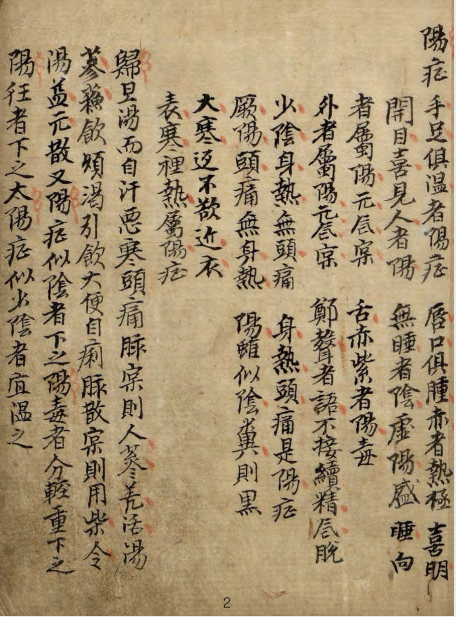 陽症 手足俱溫者陽症 唇口俱腫赤者熱極 喜明
開目喜見人者陽 無睡者陰虛陽盛 睡向
者屬陽元氣實 舌赤紫者陽毒
外者屬陽元氣實 鄭聲者語不接續精氣脫
少陰身熱無頭痛 身熱頭痛是陽症
厥陽頭痛無身熱 陽雖似陰糞則黑
大寒迢不欲近衣
表寒裡熱屬陽症
歸旦湯而自汗惡寒頭痛脉實則人蔘羌活湯
蔘蘇飮煩渴引飮大便自痢脉散實則用柴令
湯益元散又陽症似陰者下之陽毒者分輕重下之
陽狂者下之太陽症似少陰者宜溫之
2